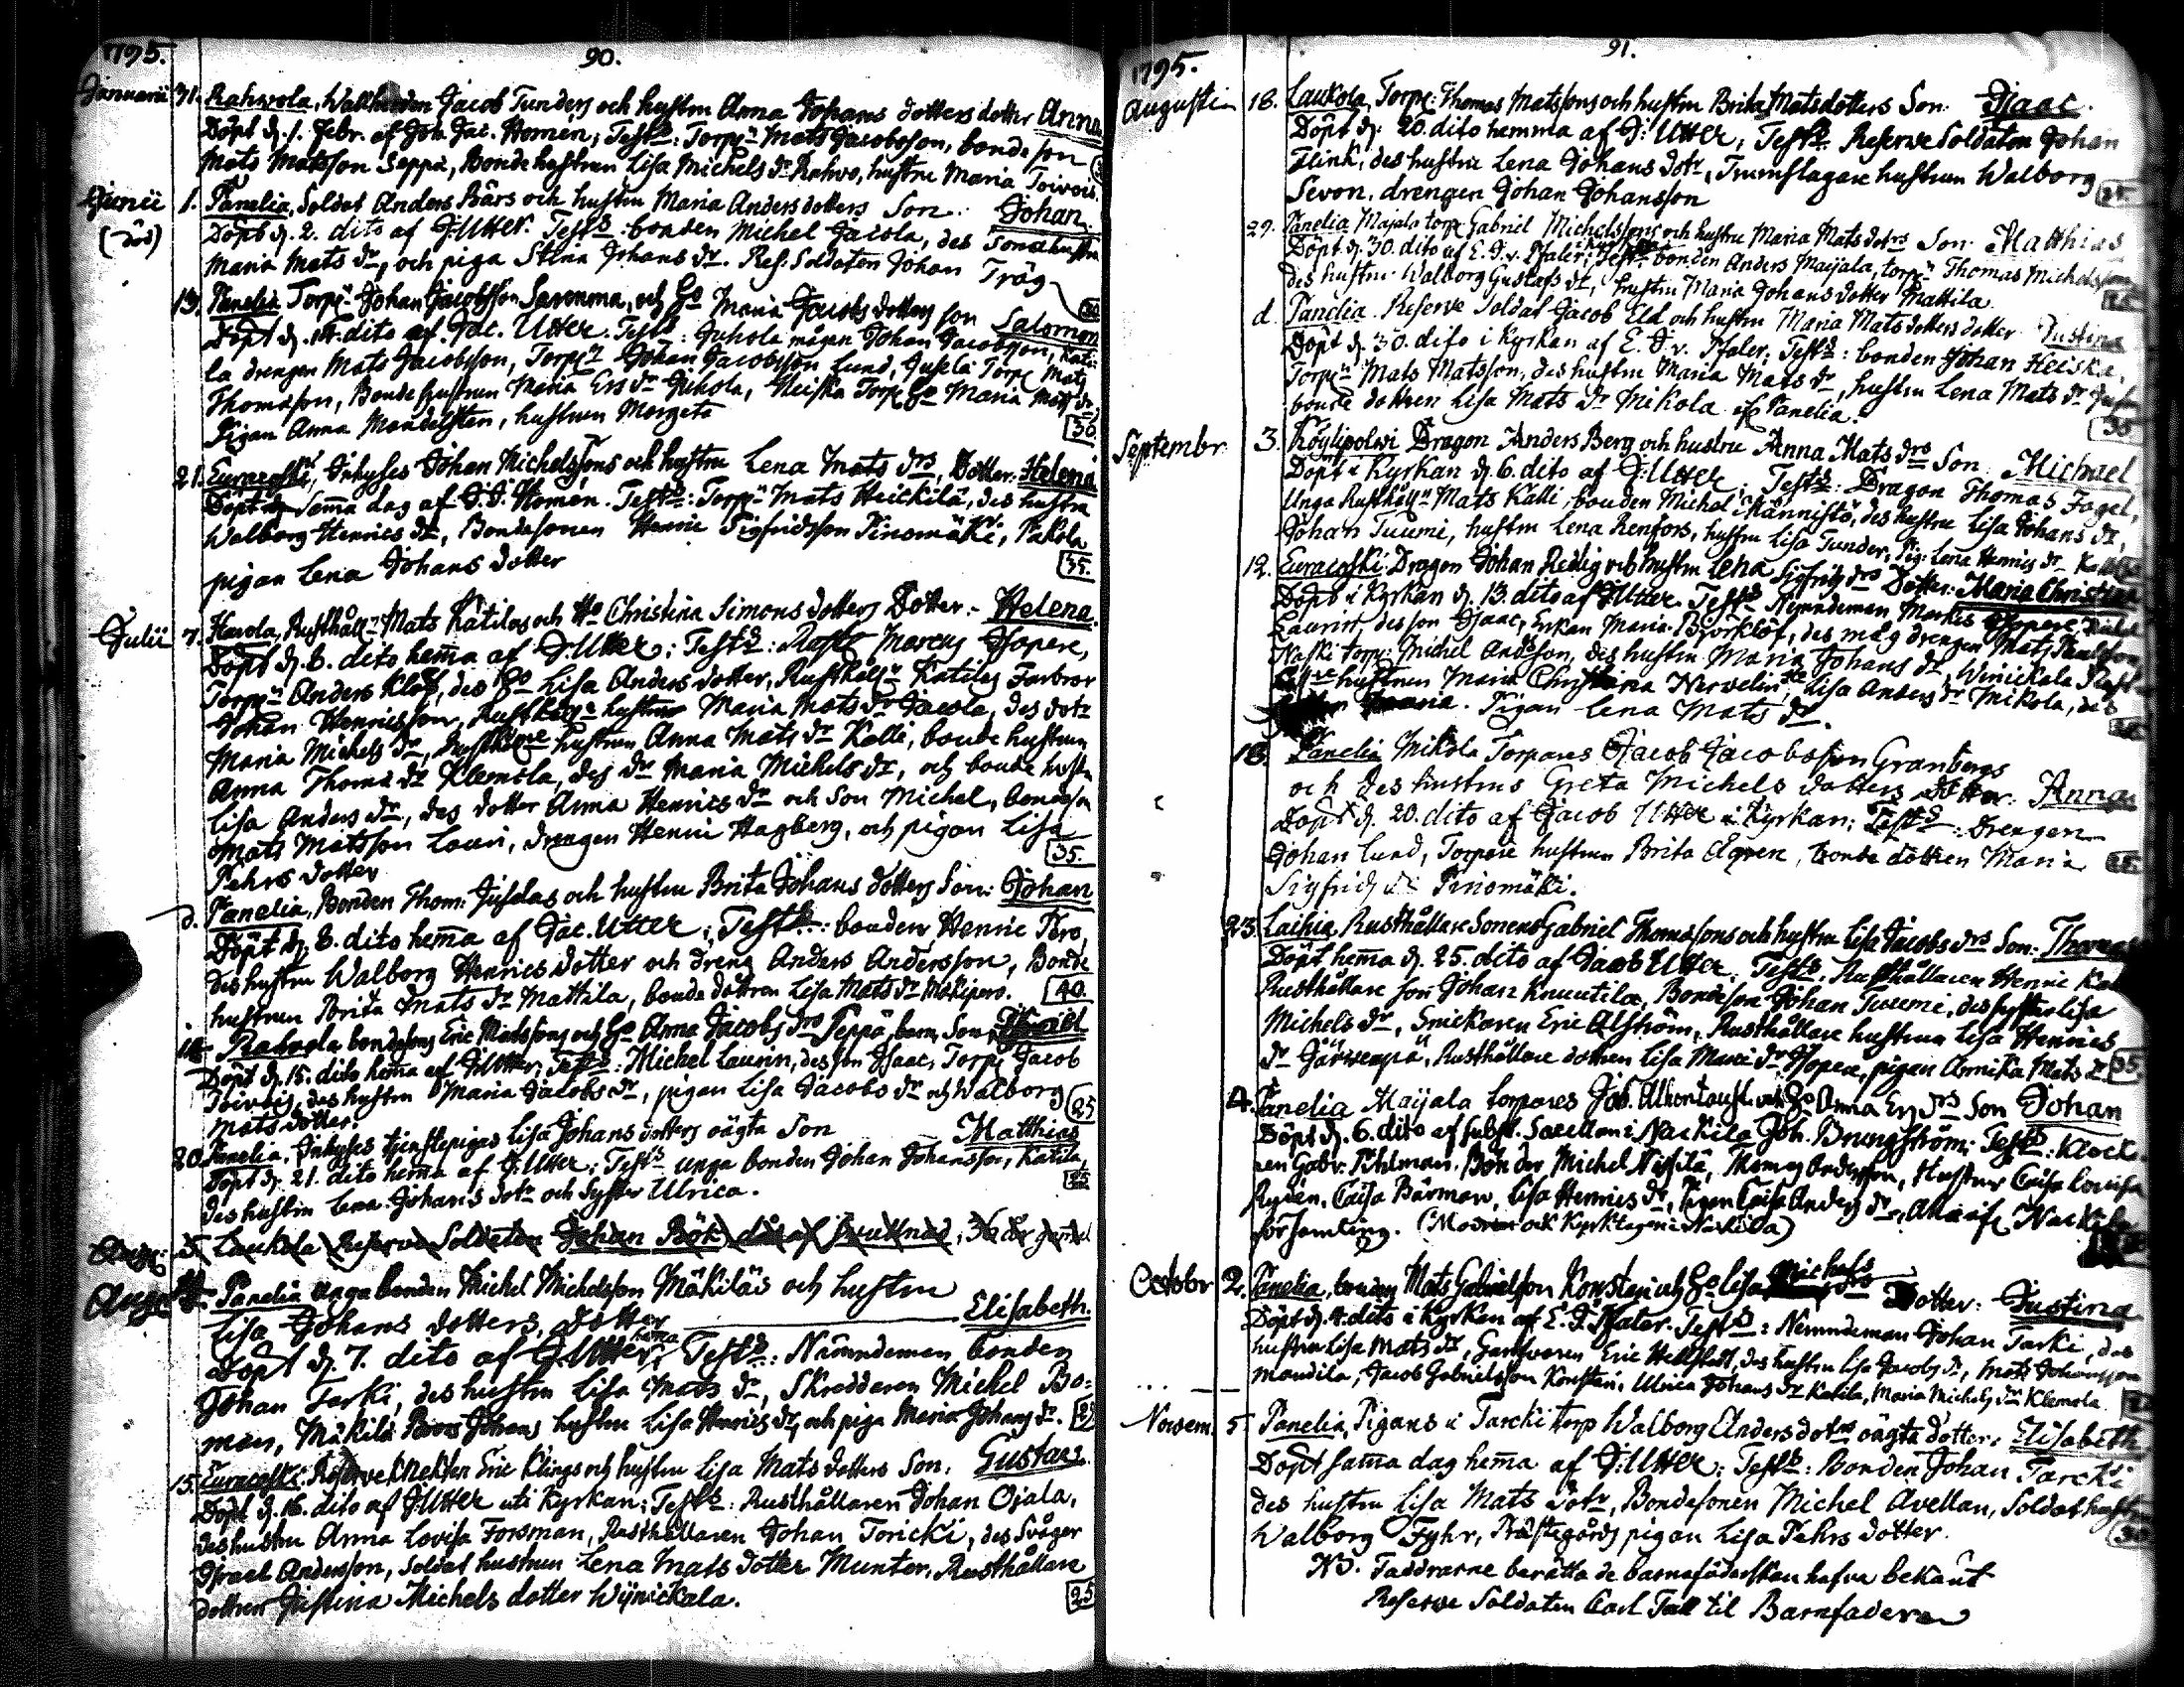 1795.
90.
Januarii 31. Rahvola, Wallherden Jacob Tunders och hustru Anna Johans dotters dotter Anna
Döpt d. 1. Febr. af Joh. Jac. Homén; Test: Torp: Mats Jacobsson, bonde son
Mats Matsson Seppä, Bonde hustrun Lisa Michels dr Rahvo, hustru Maria Toivois.
Junii 1. Panelia, Soldat Anders Bärs och hustru Maria Anders dotters Son: Johan.
Döpt d. 2. dito af J: Utter. Test: bonden Michel Jacola, des Sonahustru
Maria Mats dr, och piga Stina Johans dr. Res. Soldaten Johan Träg
13. Panelia Torp: Johan Jacobsson Savenma, och Ho Maria Jacobs dotters son Salomon
Döpt d. 14. dito af Jac. Utter. Test: Juhola mågen Johan Jacobsson, Kati-
la drengen Mats Jacobsson, Torp: Johan Jacobsson Lund, Jusela Torp: Mats
Thomasson, Bonde hustrun Maria Ers dr Juhola, Heiska Torp: Ho Maria Mats dr
Pigan Anna Mandelsten, hustrun Margeta 30.
21. Euracoski, Inhyses Johan Michelssons och hustru Lena Mats drs, Dotter: Helena
Döpt samma dag af J. J. Homén. Test: Torp: Mats Heickilä, des hustru
Walborg Henrics dr, Bondesonen Henric Sigfridsson Pinomäki, Pakola
pigan Lena Johans dotter 35.
Julii 7. Harola, Rusthåll: Mats Katilas och Ho Christina Simons dotters Dotter: Helena.
Döpt d. 8. dito hema af J: Utter; Test: Marcus Isopere,
Torp: Anders Klöf, des Ho Lisa Anders dotter, Rusthåll: Katilas Farbror
Johan Henricsson, hustrun Maria Mats dr Jacola, des dotr
Maria Michels dr, hustrun Anna Mats dr Kalli, bonde hustrun
Anna Thoma dr Klemola, des dr Maria Michels dr, och bonde hustru
Lisa Anders dr, des dotter Anna Henrics dr och Son Michel, bondeson
Mats Matsson Lauri, drengen Henric Hagberg, och pigan Lisa
Pehrs dotter 35.
d. Panelia, Bonden Thom: Juselas och hustru Brita Johans dotters Son: Johan
Döpt d. 8. dito hema af Jac. Utter; Test: bonden Henric Pero,
des hustru Walborg Henrics dotter och dreng Anders Andersson, Bonde
hustrun Brita Mats dr Mattila, bonde dottren Lisa Mats dr Mäkipero. 40.
14. Rahvola bondesons Eric Matssons och Ho Anna Jacobs drs Seppä, barn, Son:
Döpt d. 15. dito hema af J: Utter; Test: Michel Laurin, des son Isaac, Torp: Jacob
Toivois, des hustru Maria Jacobs dr, pigan Lisa Jacobs dr och Walborg
Mats dotter. 25
20. Panelia, Inhyses tjenstepigas Lisa Johans dotters oägta Son Matthias
Döpt d. 21. dito hema af J: Utter; Test: unga bonden Johan Johansson Katila,
des hustru Lena Johans dotr och Syster Ulrica. 25
5. Laukola Reserve Soldaten Johan Bök
August Panelia unga bonden Michel Michelsson Mäkiläs och hustru
Lisa Johans dotters, dotter Elisabeth.
Döpt d. 7. dito af J: Utter hema; Test: Nämndeman bonden
Johan Tarki, des hustru Lisa Mats dr, Skreddaren Michel Bo-
man, Mäkilä Johans hustru Lisa Henrics dr, och piga Maria Johans dr.
15. Euracoski: Reserveknekten Eric Klings och hustru Lisa Mats dotters Son: Gustaf.
Döpt d. 16. dito af J: Utter uti Kyrkan; Test: Rusthållaren Johan Ojala,
des hustru Anna Lovisa Forsman, Rusthållaren Johan Toricki, des Svåger
Israel Andersson, Soldat hustrun Lena Mats dotter Munter, Rusthållare
dottren Justina Michels dotter Wynickala. 25
1795.
91.
Augusti 18. Laukola, Torp: Thomas Matssons och hustru Brita Matsdotters Son: Isaac.
Döpt d. 20. dito hemma af J: Utter; Test: Reserve Soldaten Johan
Flink, des hustru Lena Johans dotr, Trumslagare hustrun Walborg
Sevon, drengen Johan Johansson
29. Panelia Maijala torp: Gabriel Michelssons och hustru Maria Mats dotrs Son: Matthias
Döpt d. 30. dito af E. J. v. Pfaler; Test: bonden Anders Maijala, torp: Thomas Michelsson
des hustru Walborg Gustafs dr, hustru Maria Johans dotter Mattila.
d. Panelia. Reserve Soldat Jacob Eld och hustru Maria Mats dotters dotter Justina
Döpt d. 30. dito i Kyrkan af E. J. v. Pfaler; Test: bonden Johan Heiska,
Torp: Mats Matsson, des hustru Maria Mats dr, hustru Lena Mats dr
bonde dottren Lisa Mats dr Mikola af Panelia. 35
September 3. Köylipolvi Dragon Anders Berg och hustru Anna Mats drs Son: Michael
Döpt i Kyrkan d. 6. dito af J: Utter; Test: Dragon Thomas Fogel,
Unga Rusthåll: Mats Kalli, bonden Michel Kännistö, des hustru Lisa Johans dr,
Johan Tuumi, hustru Lena Renfors, hustru Lisa Tunder, Pig: Lena Henrics dr
12. Euracoski: Dragon Johan Redlig och hustru Lena Sigfrids drs Dotter: Maria Christina
Döpt i Kyrkan d. 13. dito af J: Utter. Test: Nemndeman Markus Isopere,
Laurin des son Isaac, Enkan Maria Björklöf, des måg drengen Mats Paulsson
Naski torp: Michel Andersson, des hustru Maria Johans dr, Winickala
hustrun Maria Christina Nervelin, Lisa Anders dr Mikola, des
Pigan Lena Mats dr.
18. Panelia Mikola Torpares Jacob Jacobsson Granbergs
och des hustrus Greta Michels dotters dotter: Anna
Döpt d. 20. dito af Jacob Utter i Kyrkan; Test: drengen
Johan Lund, Torpare hustrun Brita Ågren, bonde dottren Maria
Sigfrids dr Pinomäki.
23. Laihia, Rusthållare Sonens Gabriel Thomassons och hustru Lisa Jacobs drs Son: Thomas
Döpt hema d. 25. dito af Jacob Utter; Test: Rusthållaren Henric
Rusthållare son Johan Knuutila, Bondeson Johan Tuumi, des syster Lisa
Michels dr, Snickaren Eric Alström, Rusthållare hustrun Lisa Henrics
dr Järvenpä, Rusthållare dottren Lisa Marci dr Isopere, pigan Annika Mats dr 35
4. Panelia Maijala torpares Joh. och Ho Anna Ers drs Son Johan
Döpt d. 6. dito af Sacellan i Nackila Joh. Brungström; Test: Klock-
ren Gabr. Pihlman, Bonden Michel Nissilä, Thomas Andersson, Hustrur Caisa Lovisa
Rydén, Caisa Bärman, Lisa Henrics dr, Pigan Caisa Anders dr, Alla af Nackila
församling. (Modren och Kyrktagen i Nackila)
October 2. Panelia, bonden Mats Gabrielsson Konstari och Ho Lisa Michels drs Dotter: Justina
Döpt d. 4. dito i Kyrkan af E. J. Pfaler. Test: Nemndeman Johan Tarki, des
hustru Lisa Mats dr, Garfvaren Eric Hellstedt, des hustru Lisa Jacobs dr, Mats Johansson
Mandila, Jacob Gabrielsson Konstari, Ulrica Johans dr Katila, Maria Michels dr Klemola
Novem. 5 Panelia, Pigans i Tarcki torp Walborg Anders dotrs oägta dotter: Elisabeth
Döpt sama dag hema af J: Utter; Test: Bonden Johan Tarcki
des hustru Lisa Mats dotr, Bondesonen Michel Avellan, Soldat hustru
Walborg Fyhr, Prästegårds pigan Lisa Pehrs dotter.
NB. Faddrarne berätta de barnaföderskan hafva bekänt
Reserve Soldaten Carl Tall til Barnfaderen